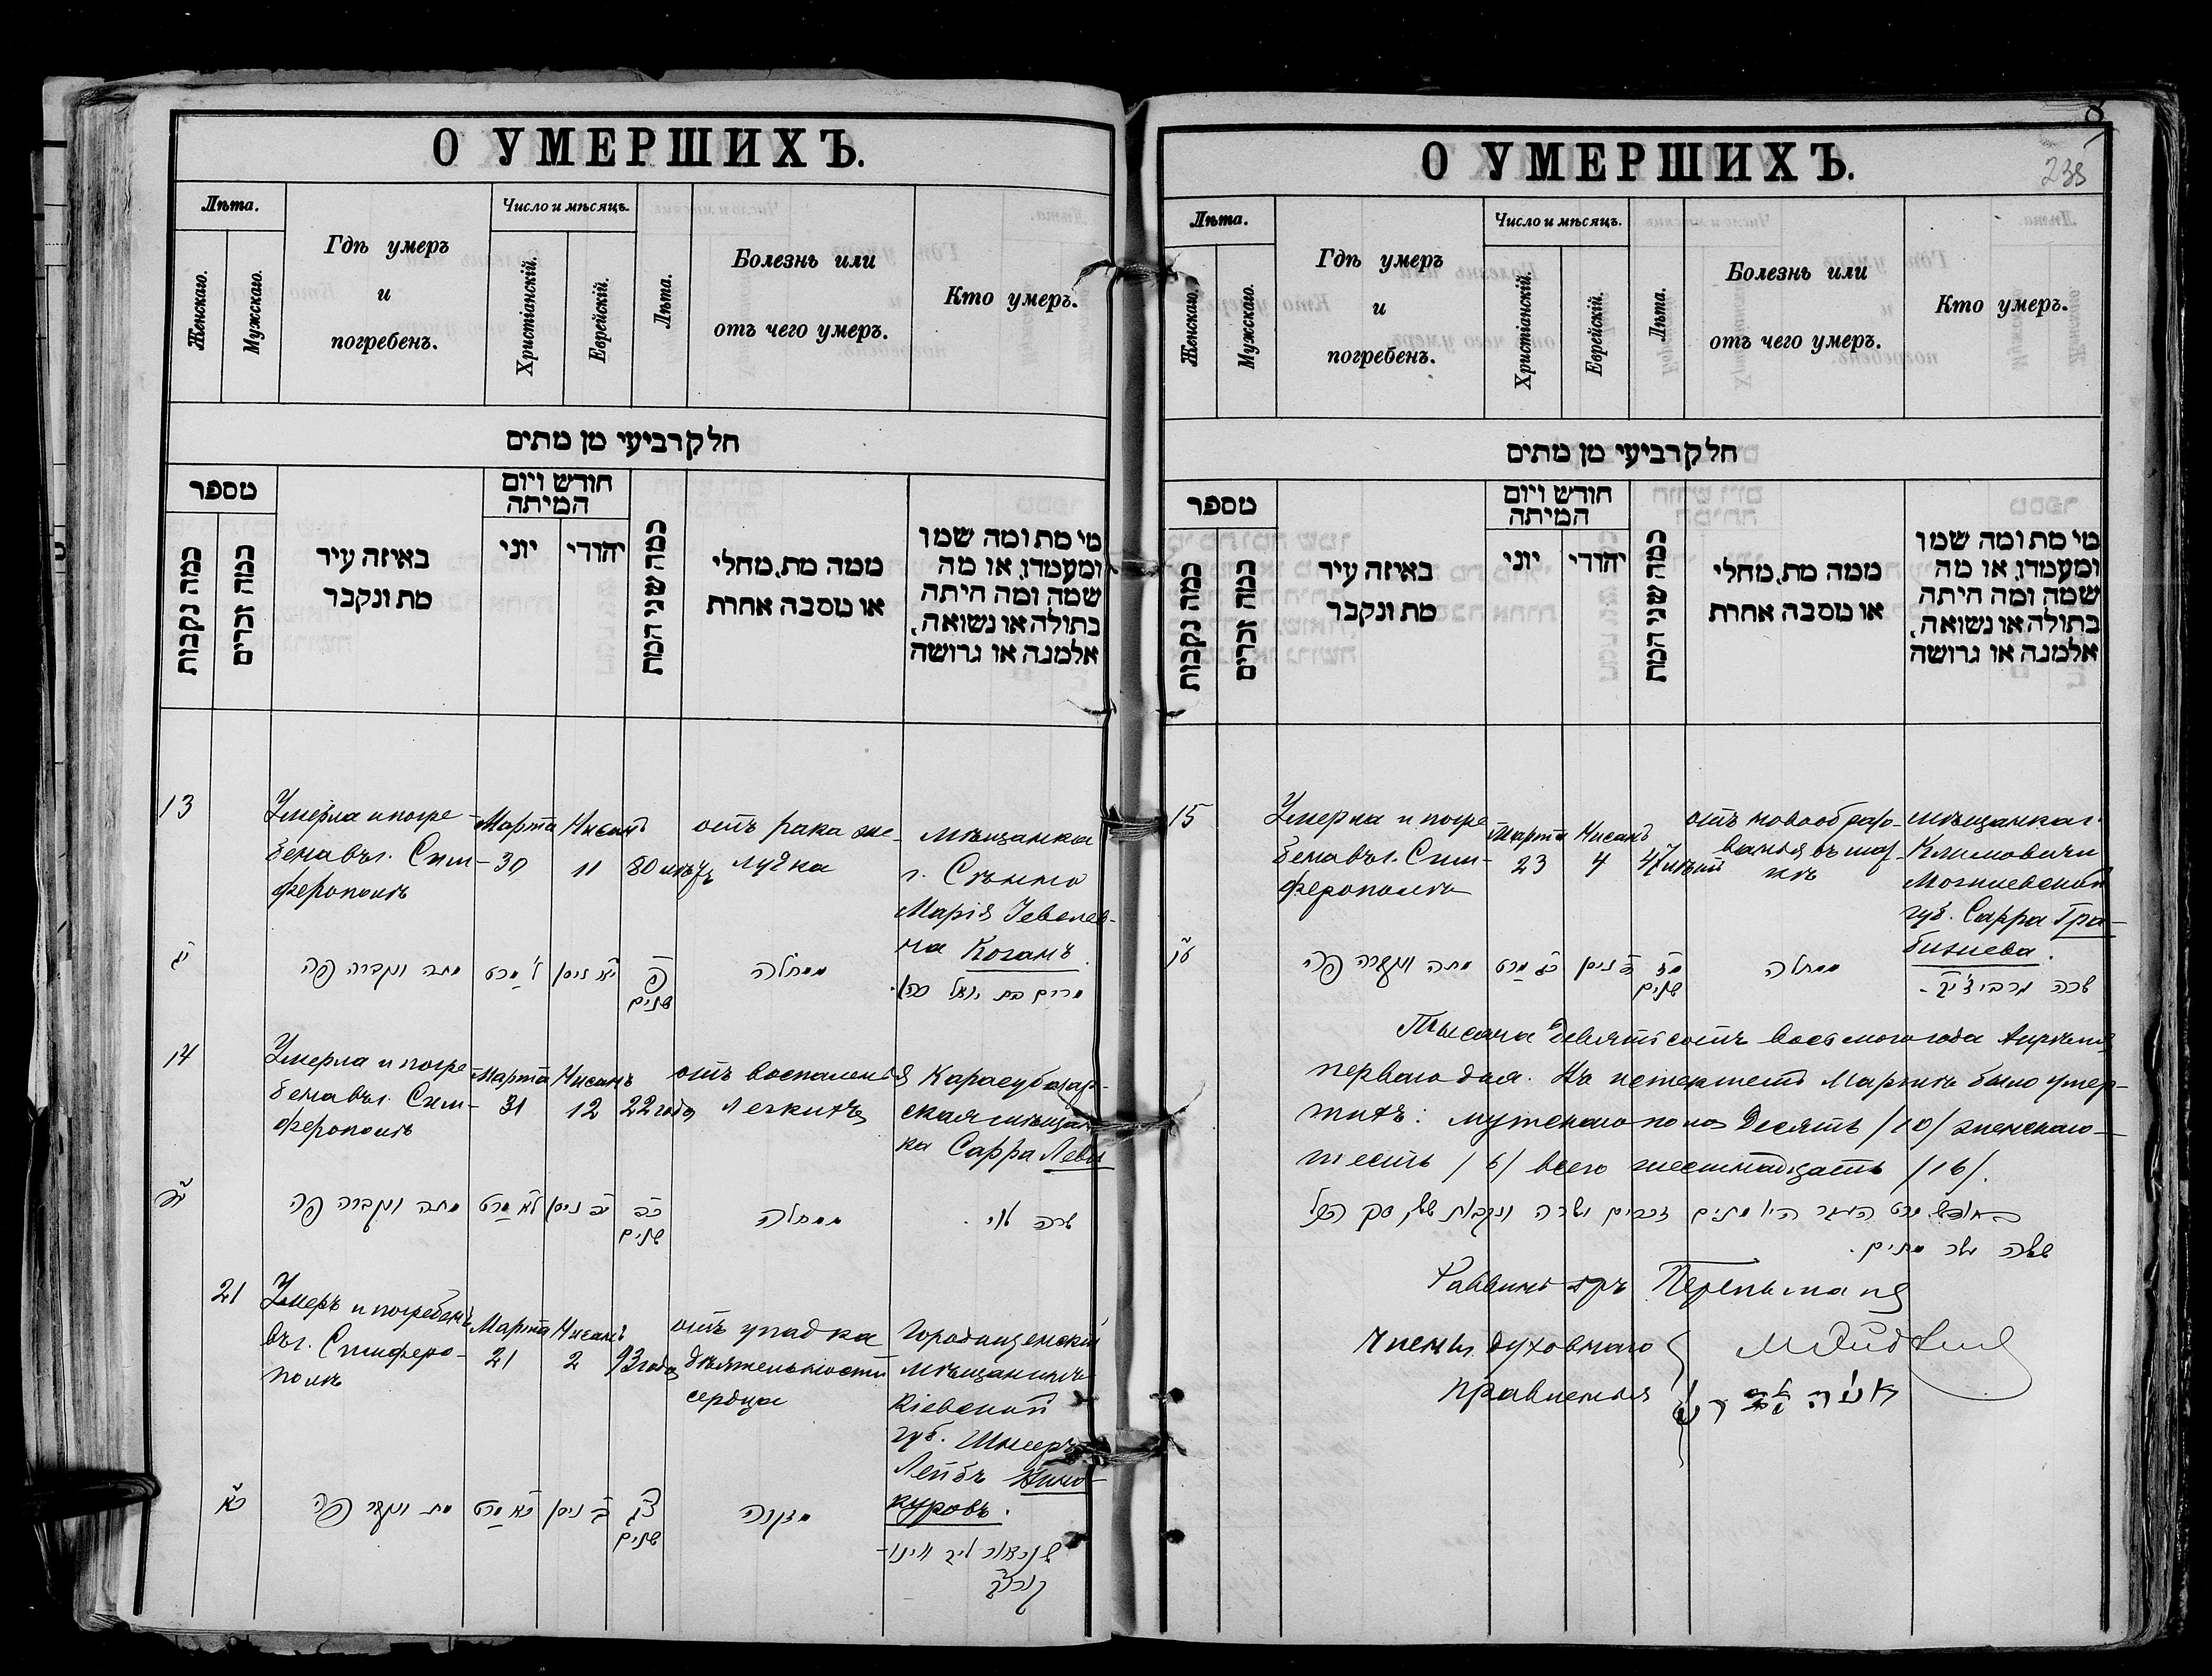 О УМЕРШИХЪ.
Лѣта.
Женскаго.
Мужскаго.
Гдѣ умеръ
и
погребенъ.
Число и мѣсяцъ.
Христіанскій.
Еврейскій.
Лѣта.
Болезнь или
отъ чего умеръ.
Кто умеръ.
חלק רביעי מן מתים
מספר
כמה נקבות
כמה זכרים
באיזה עיר
מת ונקבר
חודש ויום
המיתה
יוני
יהודי
כמה שני המת
ממה מת, מחלי
או מסבה אחרת
מי מת ומה שמו
ומעמדו, או מה
שמה ומה היתה
בתולה או נשואה,
אלמנה או גרושה
13
Умерла и погре-
бена въ г. Сим-
ферополѣ
Марта
30
Нисанъ
11
80 лѣтъ
отъ рака же-
лудка
мѣщанка
г. Сѣнно
Марія
на Коганъ.
יג
מתה ונקברה פה
ל מרט
יא ניסן
פ
שנים
ממחלה
מרים בת יואל כהן.
14
Умерла и погре-
бена въ г. Сим-
ферополѣ
Марта
31
Нисанъ
12
22 года
отъ воспаленія
легкихъ
Карасубазар-
ская мѣщан-
ка Сарра Леви
יד
מתה ונקברה פה
לא מרט
יב ניסן
כב
שנים
ממחלה
שרה לוי.
21
Умеръ и погребенъ
въ г. Симферо-
полѣ
Марта
21
Нисанъ
2
93 года
отъ упадка
дѣятельности
сердца
Городищенскій
мѣщанинъ
Кіевской
губ. Шнеръ
Лейбъ Вино-
куровъ.
כא
מת ונקבר פה
כא מרט
ב ניסן
צג
שנים
מזקנה
שניאור ליב ווינו-
О УМЕРШИХЪ.
8
238
Лѣта.
Женскаго.
Мужскаго.
Гдѣ умеръ
и
погребенъ.
Число и мѣсяцъ.
Христіанскій.
Еврейскій.
Лѣта.
Болезнь или
отъ чего умеръ.
Кто умеръ.
חלק רביעי מן מתים
מספר
כמה נקבות
כמה זכרים
באיזה עיר
מת ונקבר
חודש ויום
המיתה
יוני
יהודי
כמה שני המת
ממה מת, מחלי
או מסבה אחרת
מי מת ומה שמו
ומעמדו, או מה
שמה ומה היתה
בתולה או נשואה,
אלמנה או גרושה
15
Умерла и погре-
бена въ г. Сим-
ферополѣ
Марта
23
Нисанъ
4
47 лѣтъ
отъ новообразо-
ванія въ
мѣщанка г.
Климовичи
Могилевской
губ. Сарра Гра-
טו
מתה ונקברה פה
כג מרט
ד ניסן
מז
שנים
ממחלה
שרה
Тысяча девятьсотъ восьмого года Апрѣля
перваго дня. Въ истекшемъ Мартѣ было умер-
шихъ: мужскаго пола десять /10/ женскаго
шесть /6/ всего шестнадцать /16/.
בחודש מרט העבר היו מתים זכרים עשרה ונקבות שש, סך הכל
ששה עשר מתים.
Раввинъ Перельманъ
Члены духовнаго
правленія